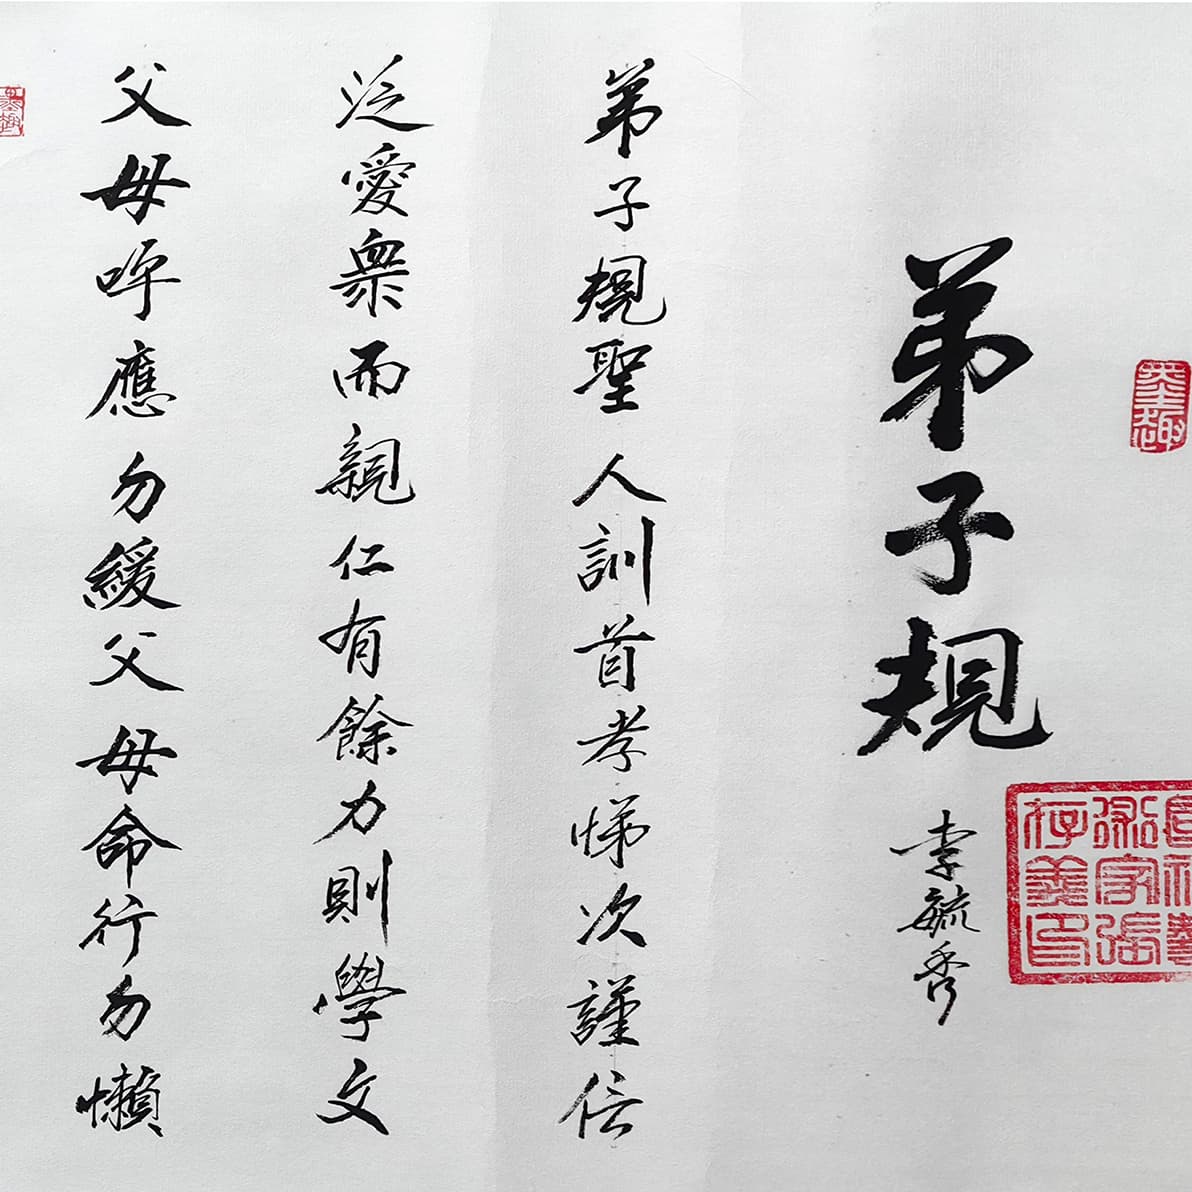 弟子規
李毓秀
弟子規聖人訓首孝悌次謹信
泛愛衆而親仁有餘力則學文
父母呼應勿緩父母命行勿懶